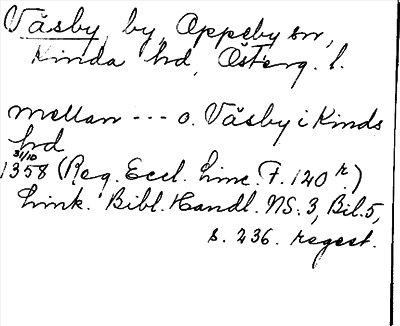 Väsby, by, Oppeby sn,
Kinda hd, Österg. l.
mellan --- o. Väsby i Kinds
hd
31/10
1358 (Reg. Eccl. Linc. F. 140 r.)
Link. Bibl. Handl. NS. 3, Bil. 5,
s. 236. regest.